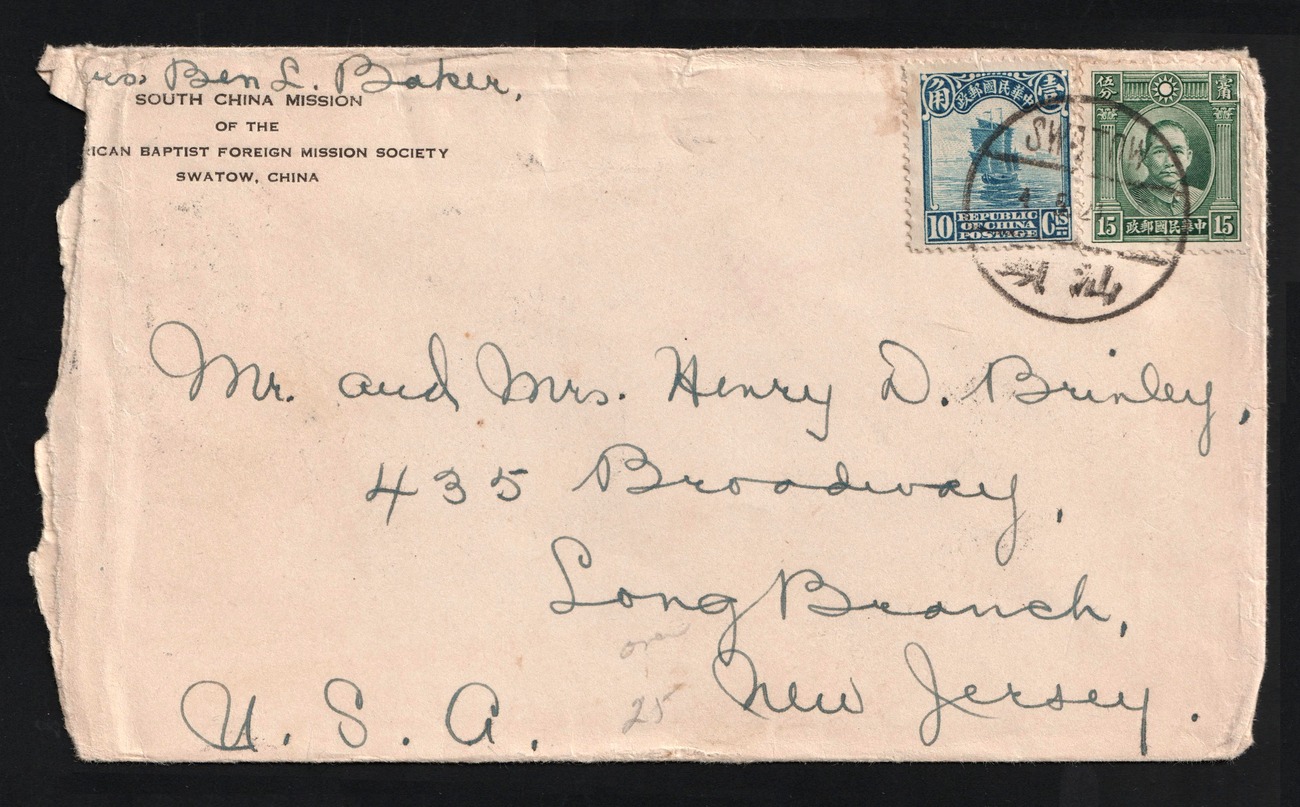 Ben L. Baker,
SOUTH CHINA MISSION
OF THE
RICAN BAPTIST FOREIGN MISSION SOCIETY
SWATOW, CHINA
角 中華民國郵政 壹
10 REPUBLIC OF CHINA POSTAGE Cts
伍分
15 中華民國郵政 15
SWATOW
汕頭
Mr. and Mrs. Henry D. Brinley,
435 Broadway,
Long Branch,
New Jersey.
U. S. A.
open
25